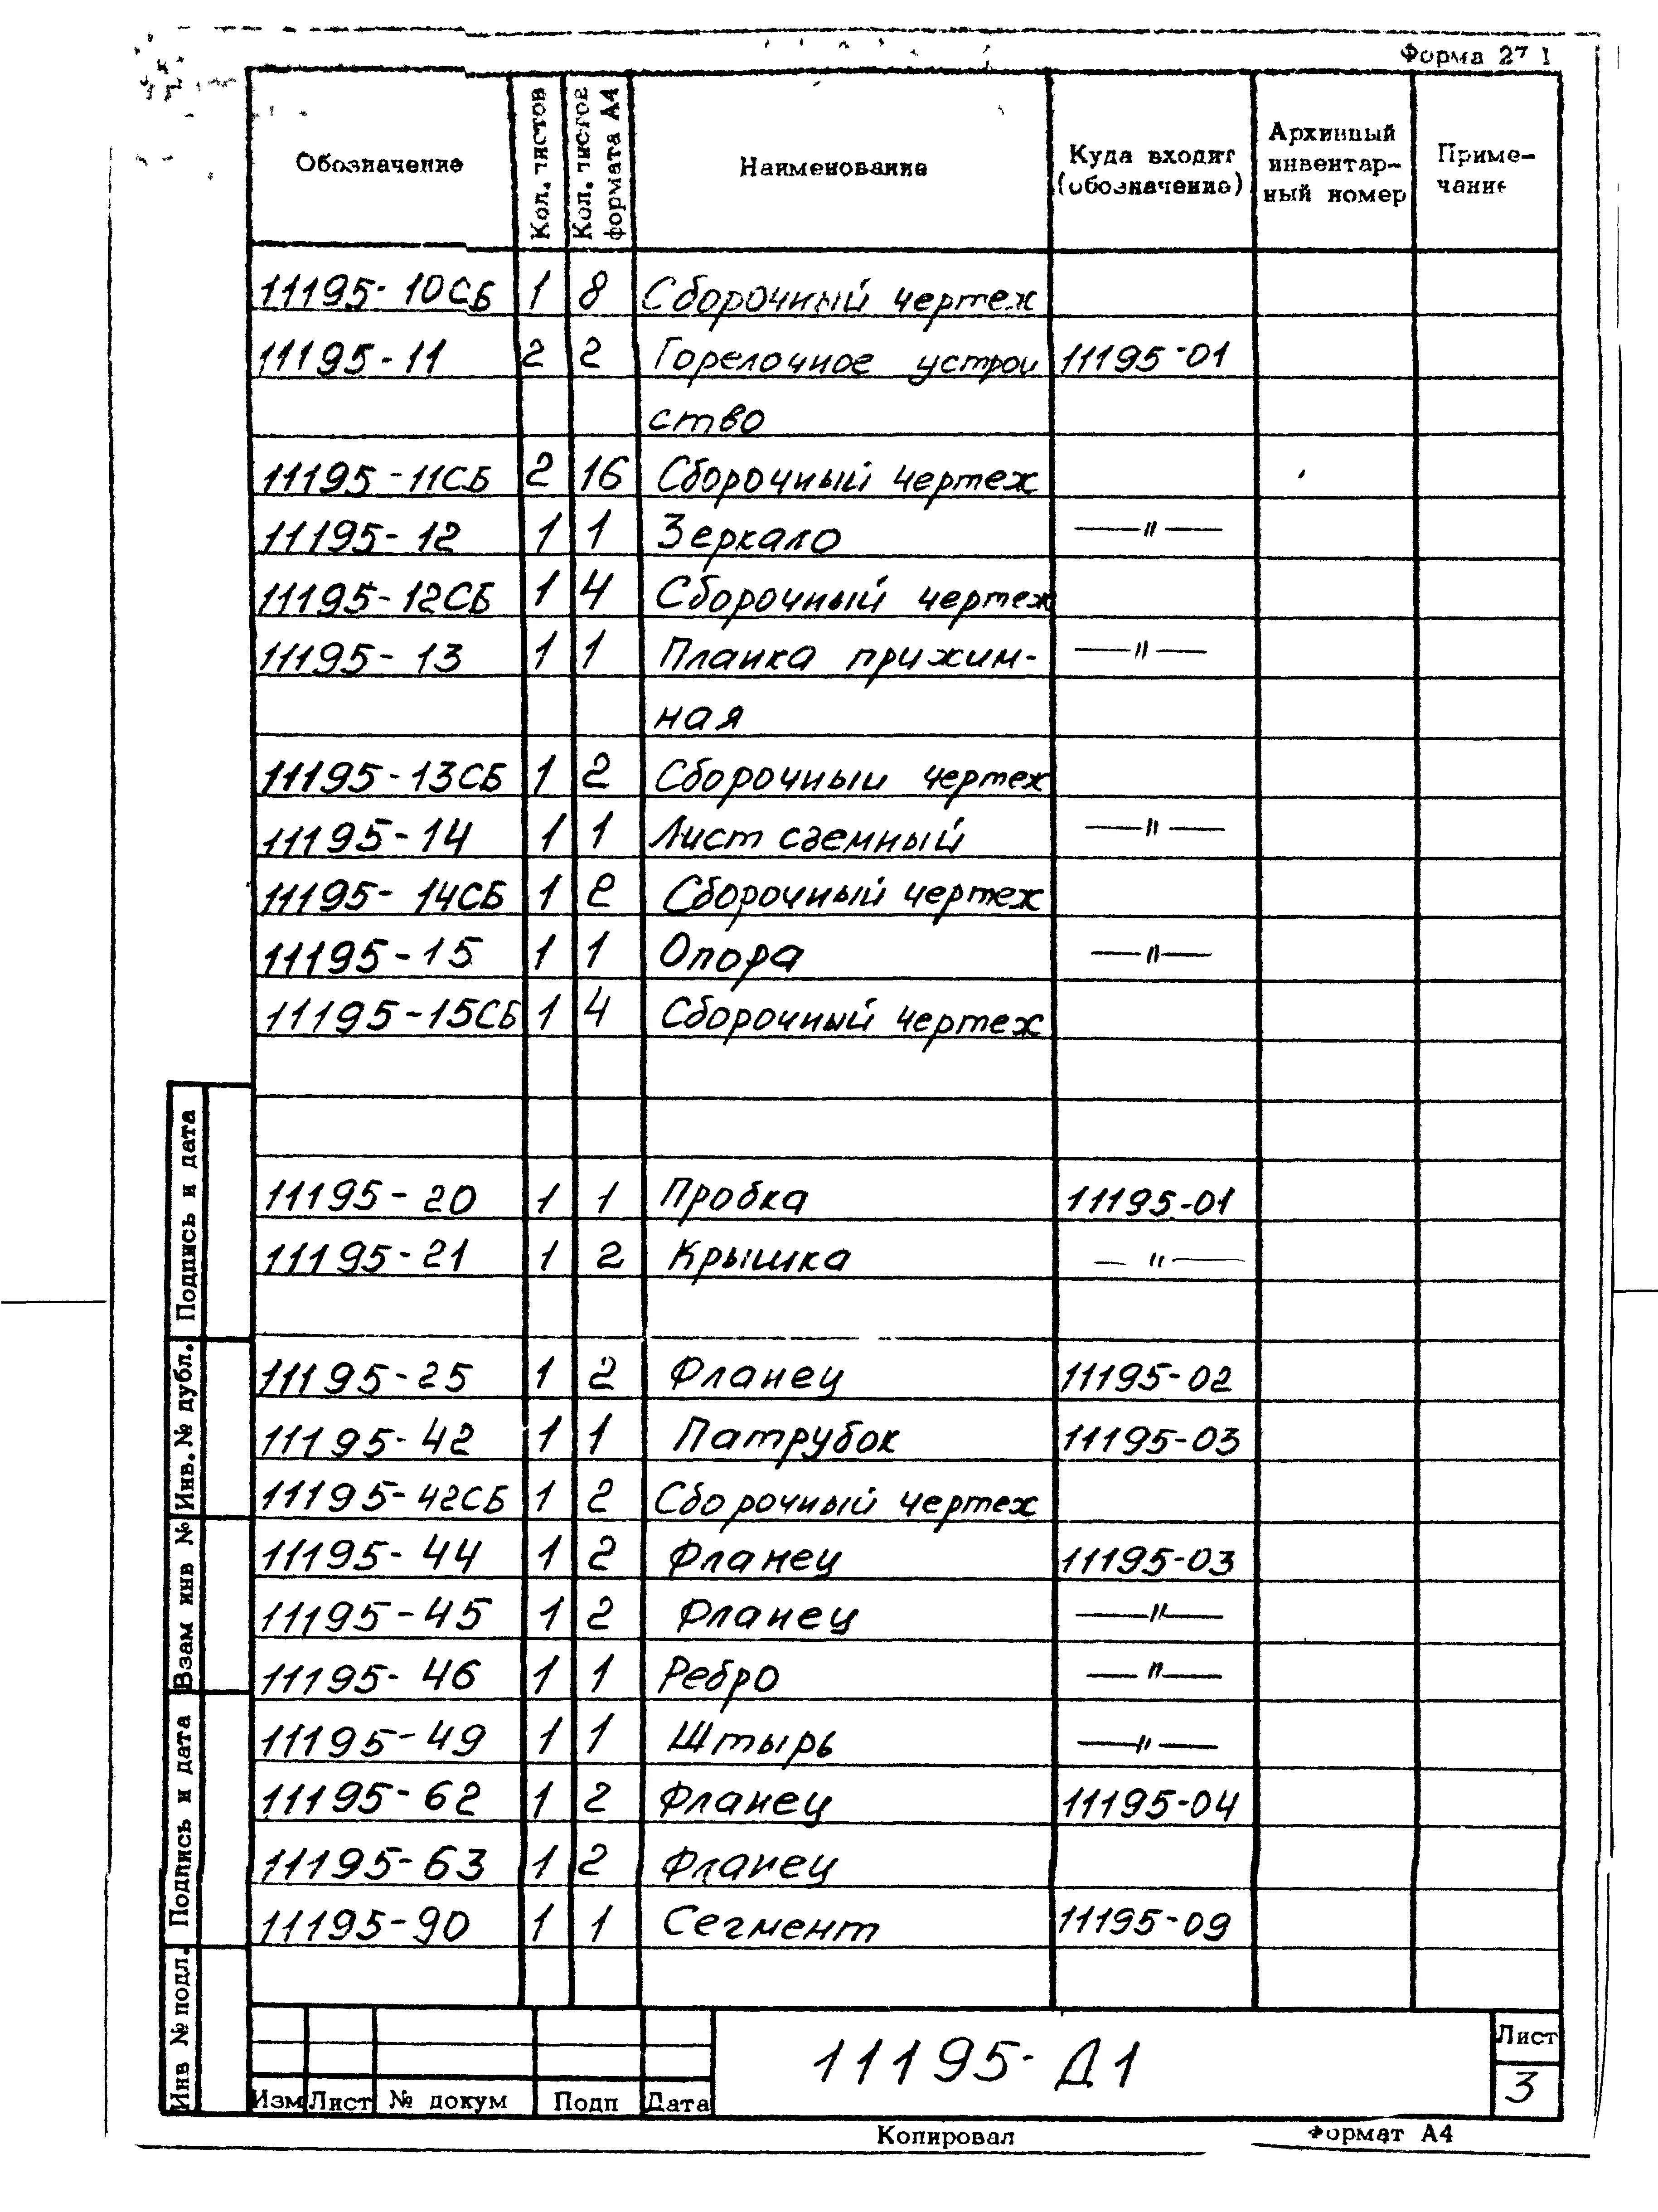 Форма 27 1
Обозначение
Кол. листов
Кол. листов
формата А4
Наименование
Куда входит
(обозначение)
Архивный
инвентар-
ный номер
Приме-
чание
11195-10СБ 1 8 Сборочный чертеж
11195-11 2 2 Горелочное устрои 11195-01
ство
11195-11СБ 2 16 Сборочный чертеж
11195-12 1 1 Зеркало —"—
11195-12СБ 1 4 Сборочный чертеж
11195-13 1 1 Планка прижим- —"—
ная
11195-13СБ 1 2 Сборочный чертеж
11195-14 1 1 Лист съемный —"—
11195-14СБ 1 2 Сборочный чертеж
11195-15 1 1 Опора —"—
11195-15СБ 1 4 Сборочный чертеж
11195-20 1 1 Пробка 11195-01
11195-21 1 2 Крышка —"—
11195-25 1 2 Фланец 11195-02
11195-42 1 1 Патрубок 11195-03
11195-42СБ 1 2 Сборочный чертеж
11195-44 1 2 Фланец 11195-03
11195-45 1 2 Фланец —"—
11195-46 1 1 Ребро —"—
11195-49 1 1 Штырь —"—
11195-62 1 2 Фланец 11195-04
11195-63 1 2 Фланец
11195-90 1 1 Сегмент 11195-09
Подпись и дата
Инв. № дубл.
Взам инв №
Подпись и дата
Инв № подл.
Изм Лист № докум Подп Дата
11195-Д1
Лист
3
Копировал
Формат А4